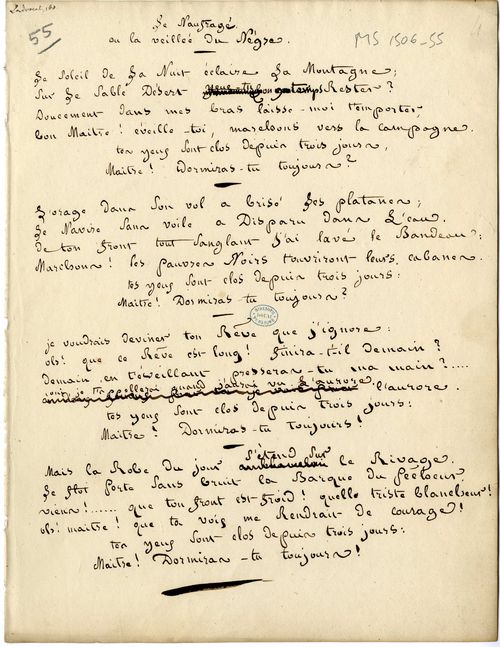 55
MS 1506-55
Le Naufragé
ou la veillée du Nègre.
Le Soleil de La Nuit éclaire La Montagne;
Sur Le Sable Désert Rester?
Doucement dans mes bras laisse-moi t'emporter,
bon Maitre! éveille-toi, marchons vers la campagne.
tes yeux sont clos depuis trois jours,
Maitre! Dormiras-tu toujours?
L'orage dans son vol a brisé Les platanes;
Le Navire Sans voile a Disparu dans L'eau.
De ton front tout sanglant j'ai lavé le Bandeau:
Marchons! les pauvres Noirs t'ouvriront leurs cabanes.
tes yeux sont clos depuis trois jours:
Maitre! Dormiras-tu toujours?
je voudrais deviner ton Rêve que j'ignore:
oh! que ce Rêve est long! finira-t-il demain?
Demain, en t'éveillant presseras-tu ma main?....
quand j'aurai vu L'aurore l'aurore.
tes yeux sont clos depuis trois jours:
Maitre! Dormiras-tu toujours!
Mais la Robe du jour s'étend sur le Rivage.
Le flot porte Sans bruit la Barque du Pêcheur.
viens!...... que ton front est froid! quelle triste blancheur!
oh! maitre! que ta voix me Rendrait de courage!
tes yeux sont clos depuis trois jours:
Maitre! Dormiras-tu toujours!